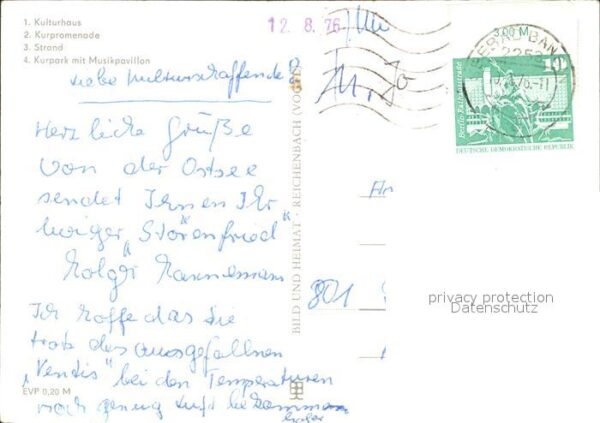 1. Kulturhaus
2. Kurpromenade
3. Strand
4. Kurpark mit Musikpavillon
12. 8. 76
Liebe Kulturschaffende!
Herzliche Grüße
von der Ostsee
sendet Ihnen Ihr
"Störenfried"
Holger
Ich hoffe das Sie
trotz des ausgefallnen
"Ventis" bei den Temperaturen
noch genug Luft bekommen
EVP 0,20 M
BILD UND HEIMAT · REICHENBACH (VOGTL)
3,00 M
SEEBAD BAN
2252
10
Berlin, Rathausstraße
DEUTSCHE DEMOKRATISCHE REPUBLIK
An
801
privacy protection
Datenschutz